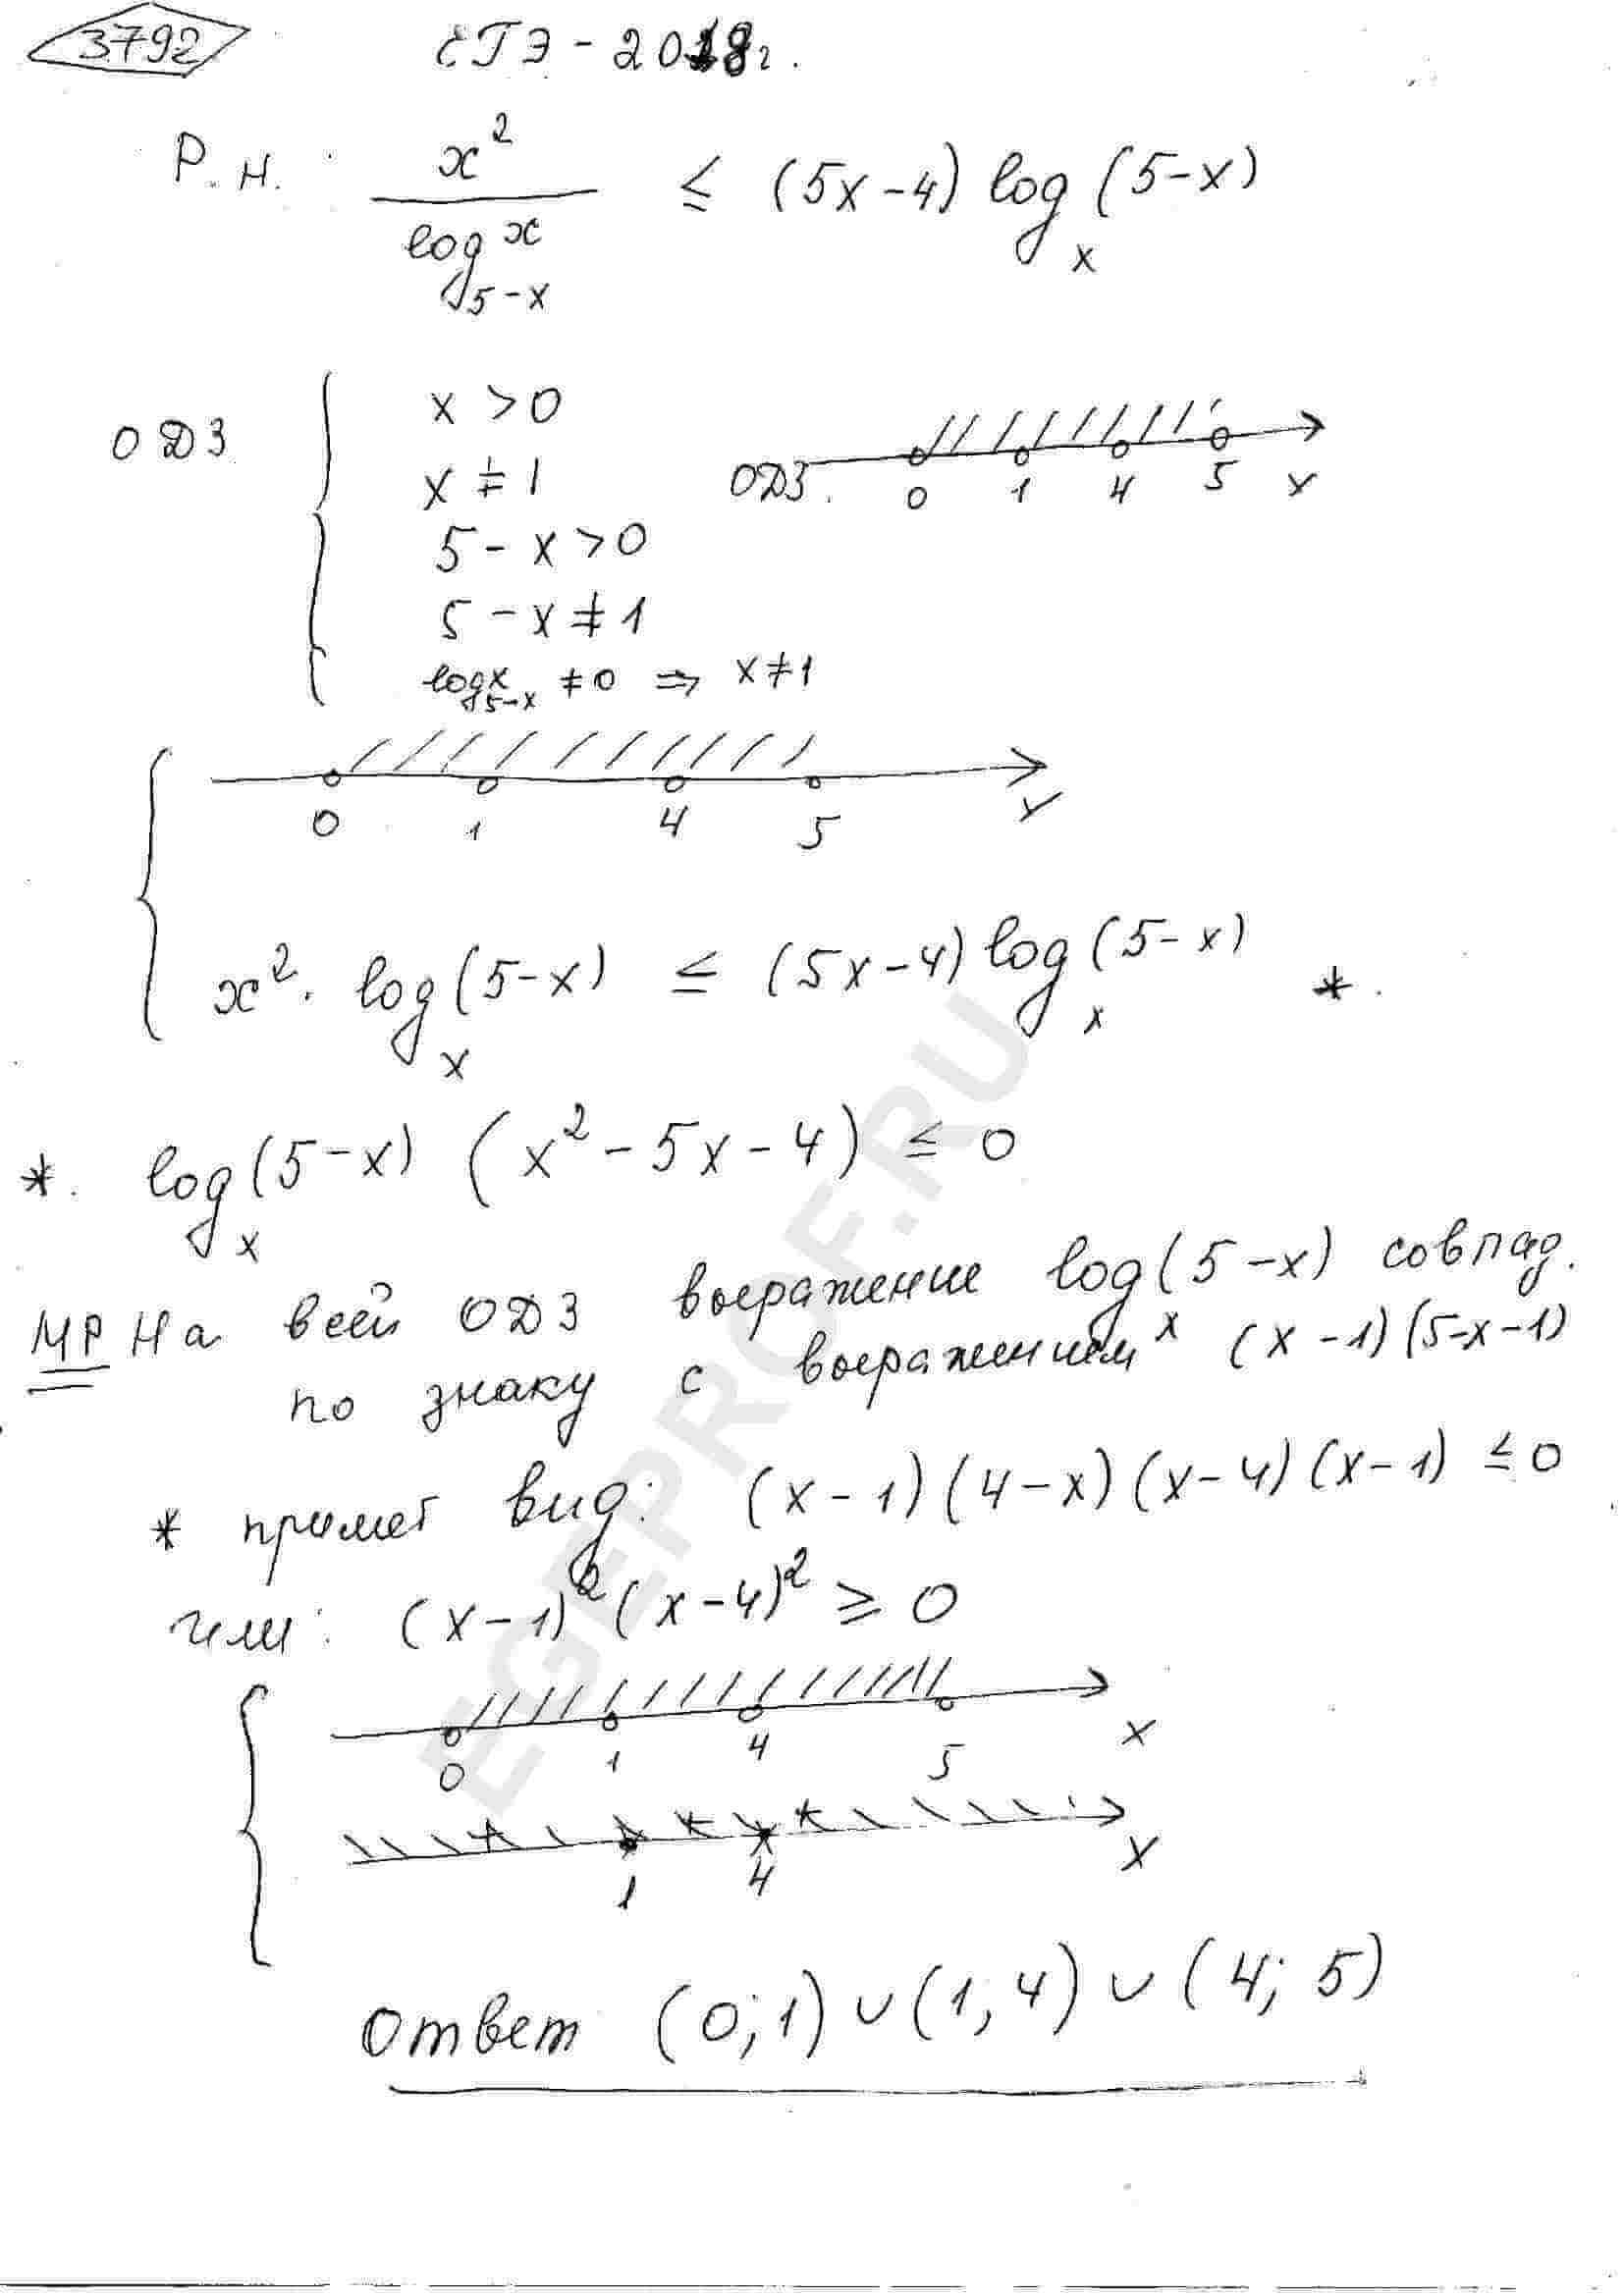 3792 ЕГЭ - 2018г.
Р.Н. : x² / log_{5-x} x ≤ (5x-4) log_x (5-x)
ОДЗ { x > 0
x ≠ 1
5 - x > 0
5 - x ≠ 1
log_{5-x} x ≠ 0 ⇒ x ≠ 1
ОДЗ. 0 1 4 5 x
{ 0 1 4 5 x
x² · log_x (5-x) ≤ (5x-4) log_x (5-x) *.
*. log_x (5-x) (x² - 5x - 4) ≤ 0
МР На всей ОДЗ выражение log_x (5-x) совпад.
по знаку с выражением (x-1)(5-x-1)
* примет вид: (x-1)(4-x)(x-4)(x-1) ≤ 0
или: (x-1)² (x-4)² ≥ 0
{ 0 1 4 5 x
1 4 x
Ответ (0;1) ∪ (1;4) ∪ (4;5)
EGEPROF.RU